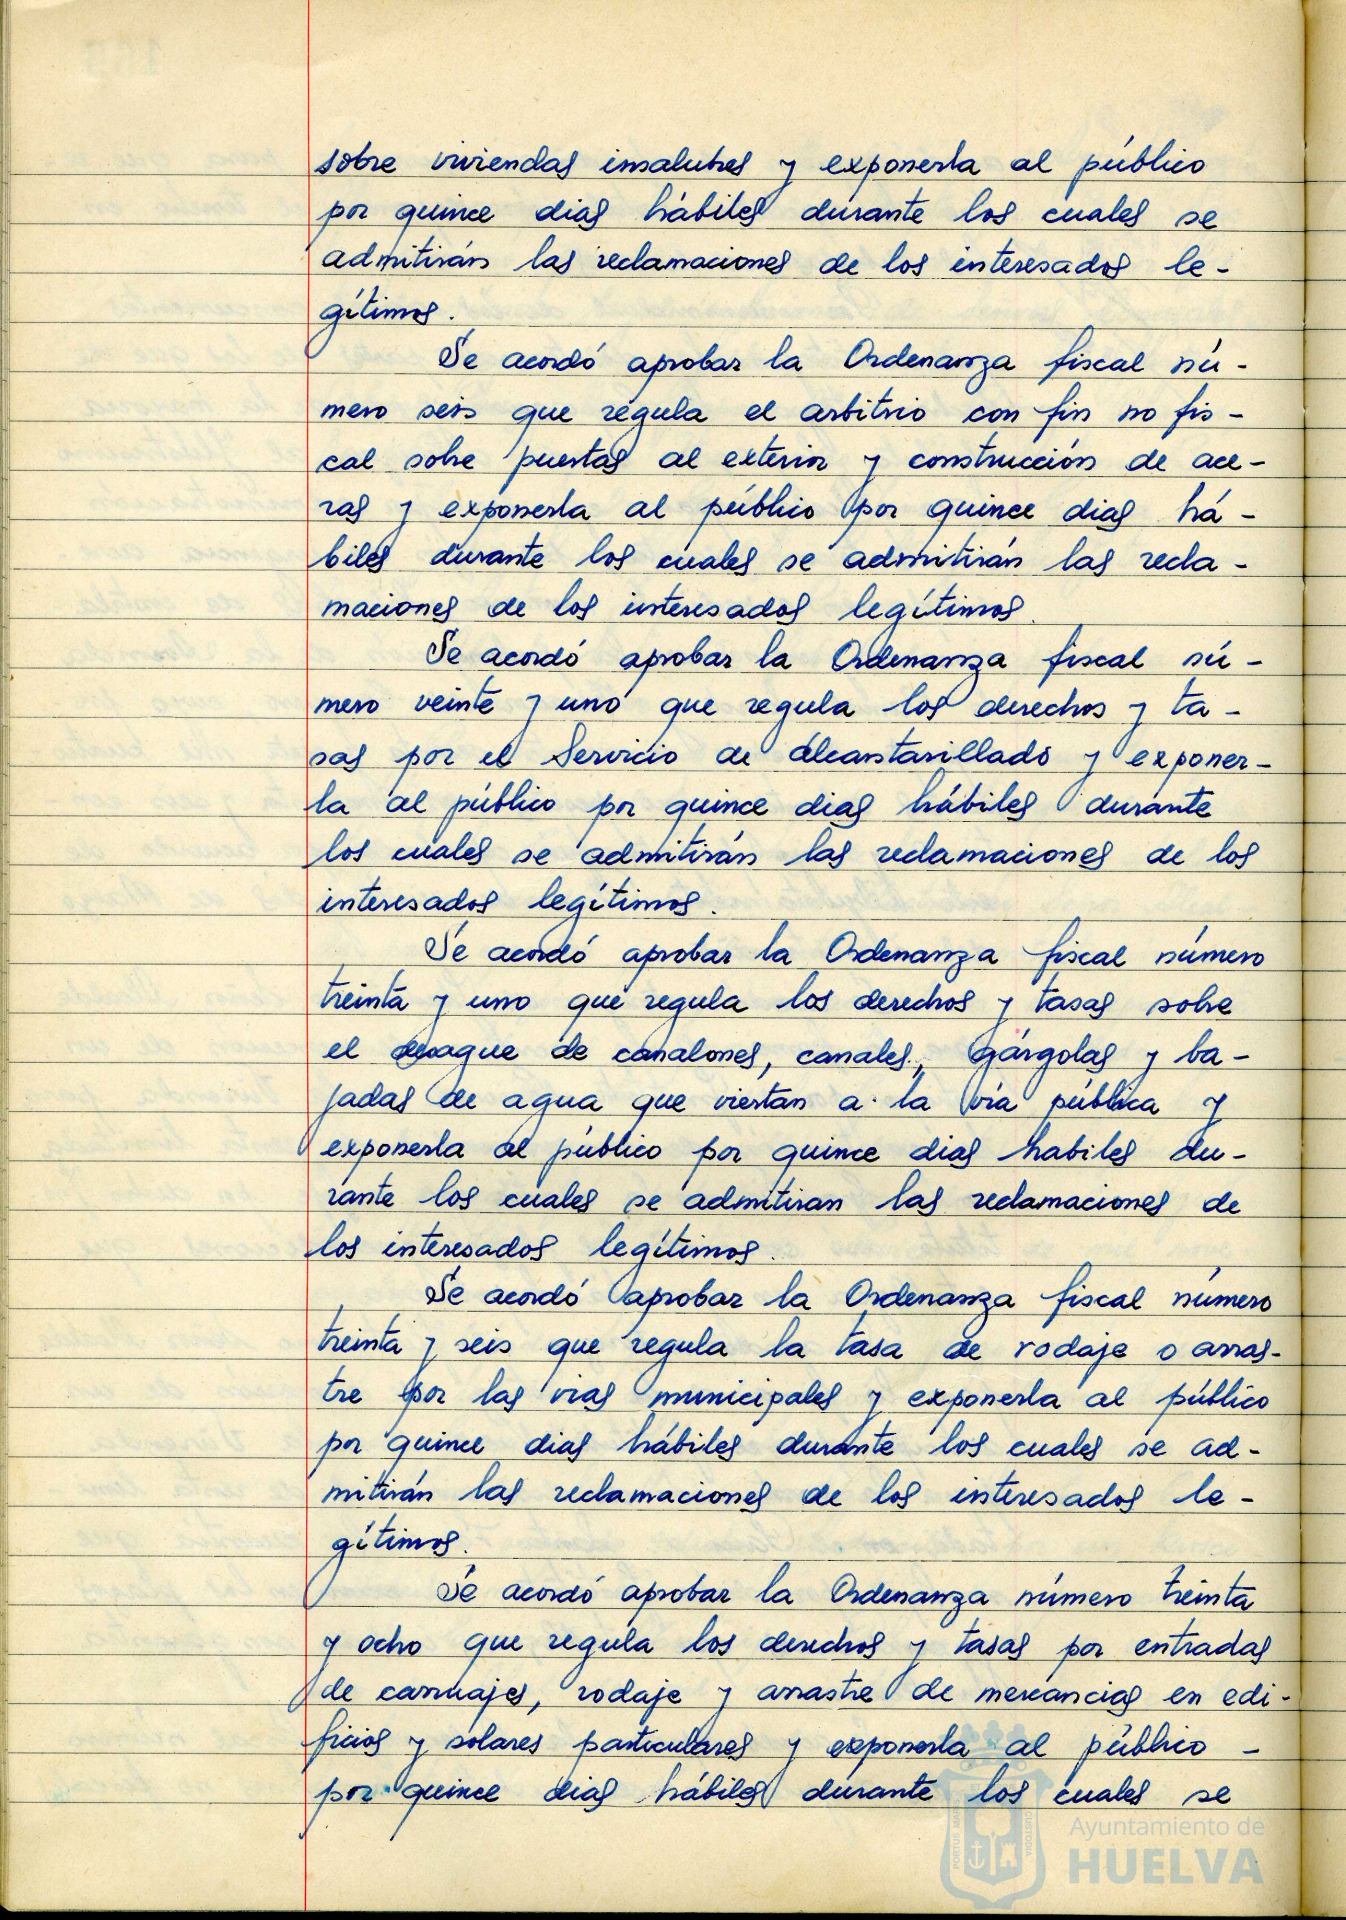 sobre viviendas insalubres y exponerla al público
por quince dias hábiles durante los cuales se
admitirán las reclamaciones de los interesados le-
gítimos.
Se acordó aprobar la Ordenanza fiscal nú-
mero seis que regula el arbitrio con fin no fis-
cal sobre puertas al exterior y construcción de ace-
ras y exponerla al público por quince dias há-
biles durante los cuales se admitirán las recla-
maciones de los interesados legítimos.
Se acordó aprobar la Ordenanza fiscal nú-
mero veinte y uno que regula los derechos y ta-
sas por el Servicio de alcantarillado y exponer-
la al público por quince dias hábiles durante
los cuales se admitirán las reclamaciones de los
interesados legítimos.
Se acordó aprobar la Ordenanza fiscal número
treinta y uno que regula los derechos y tasas sobre
el desague de canalones, canales, gárgolas y ba-
jadas de agua que viertan a la vía pública y
exponerla al público por quince dias habiles du-
rante los cuales se admitiran las reclamaciones de
los interesados legítimos.
Se acordó aprobar la Ordenanza fiscal número
treinta y seis que regula la tasa de rodaje o arras-
tre por las vias municipales y exponerla al público
por quince dias hábiles durante los cuales se ad-
mitirán las reclamaciones de los interesados le-
gítimos.
Se acordó aprobar la Ordenanza número treinta
y ocho que regula los derechos y tasas por entradas
de carruajes, rodaje y arrastre de mercancias en edi-
ficios y solares particulares y exponerla al público -
por quince dias hábiles durante los cuales se
Ayuntamiento de
HUELVA